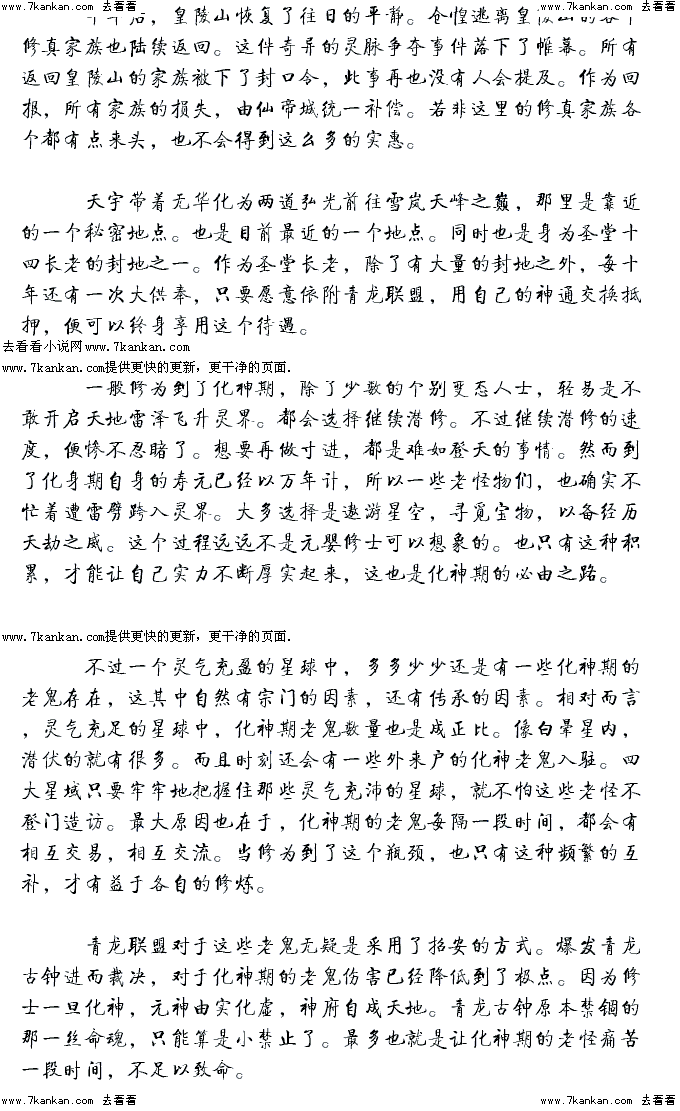 www.7kankan.com 去看看 www.7kankan.com 去看看
年后，皇陵山恢复了往日的平静。仓惶逃离皇陵山的各个
修真家族也陆续返回。这件奇异的灵脉争夺事件落下了帷幕。所有
返回皇陵山的家族被下了封口令，此事再也没有人会提及。作为回
报，所有家族的损失，由仙帝城统一补偿。若非这里的修真家族各
个都有点来头，也不会得到这么多的实惠。
天宇带着无华化为两道弘光前往雪岚天峰之巅，那里是靠近
的一个秘密地点。也是目前最近的一个地点。同时也是身为圣堂十
四长老的封地之一。作为圣堂长老，除了有大量的封地之外，每十
年还有一次大供奉，只要愿意依附青龙联盟，用自己的神通交换抵
押，便可以终身享用这个待遇。
去看看小说网www.7kankan.com
www.7kankan.com提供更快的更新，更干净的页面.
一般修为到了化神期，除了少数的个别变态人士，轻易是不
敢开启天地雷泽飞升灵界。都会选择继续潜修。不过继续潜修的速
度，便惨不忍睹了。想要再做寸进，都是难如登天的事情。然而到
了化身期自身的寿元已经以万年计，所以一些老怪物们，也确实不
忙着遭雷劈跨入灵界。大多选择是遨游星空，寻觅宝物，以备经历
天劫之威。这个过程远远不是元婴修士可以想象的。也只有这种积
累，才能让自己实力不断厚实起来，这也是化神期的必由之路。
www.7kankan.com提供更快的更新，更干净的页面.
不过一个灵气充盈的星球中，多多少少还是有一些化神期的
老鬼存在，这其中自然有宗门的因素，还有传承的因素。相对而言
，灵气充足的星球中，化神期老鬼数量也是成正比。像白晕星内，
潜伏的就有很多。而且时刻还会有一些外来户的化神老鬼入驻。四
大星域只要牢牢地把握住那些灵气充沛的星球，就不怕这些老怪不
登门造访。最大原因也在于，化神期的老鬼每隔一段时间，都会有
相互交易，相互交流。当修为到了这个瓶颈，也只有这种频繁的互
补，才有益于各自的修炼。
青龙联盟对于这些老鬼无疑是采用了招安的方式。爆发青龙
古钟进而裁决，对于化神期的老鬼伤害已经降低到了极点。因为修
士一旦化神，元神由实化虚，神府自成天地。青龙古钟原本禁锢的
那一丝命魂，只能算是小禁止了。最多也就是让化神期的老怪痛苦
一段时间，不足以致命。
www.7kankan.com 去看看 www.7kankan.com 去看看